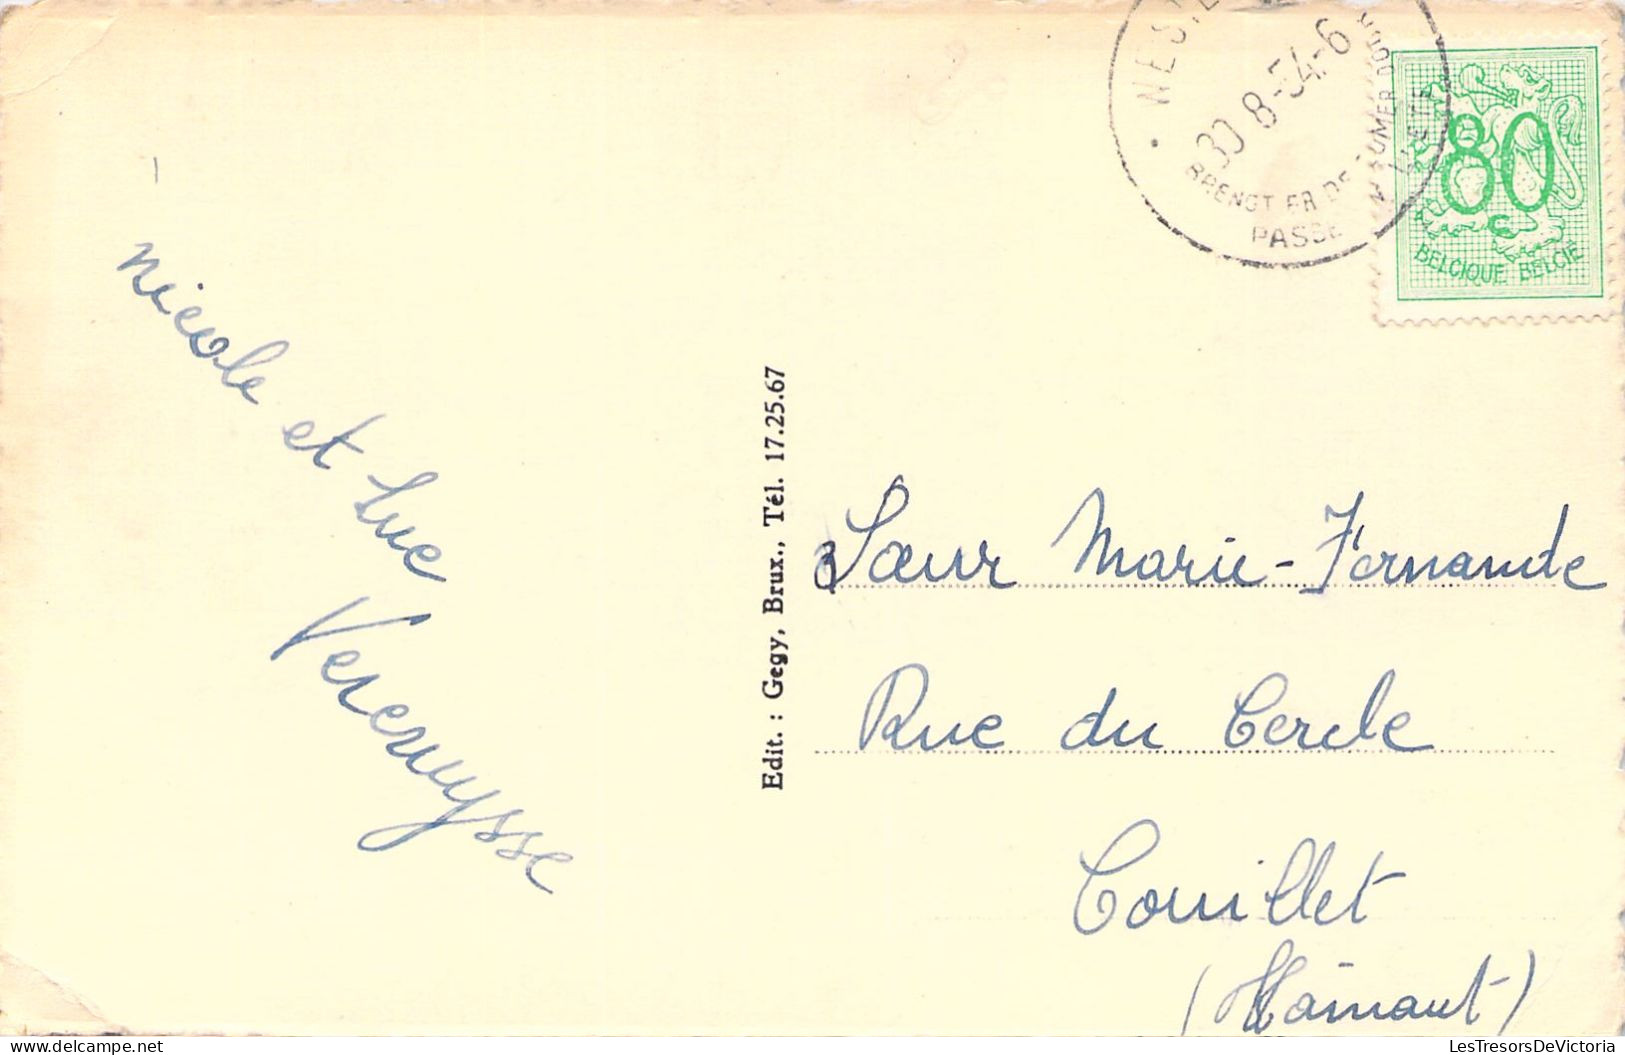 Nicole et Luc
Vereruysse
Edit. : Gegy, Brux., Tél. 17.25.67
30-8-54-6
BRENGT ER DE ZOMER DOOR
PASSE
80
c
BELGIQUE BELGIË
Sœur Marie-Fernande
Rue du Cercle
Couillet
(Hainaut)
www.delcampe.net
LesTresorsDeVictoria